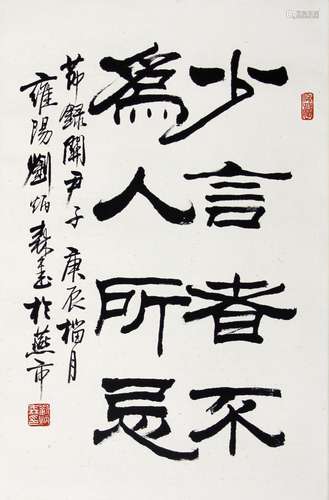 少言者不
為人所忌
節錄關尹子 庚辰榴月
雍陽劉炳森書於燕市